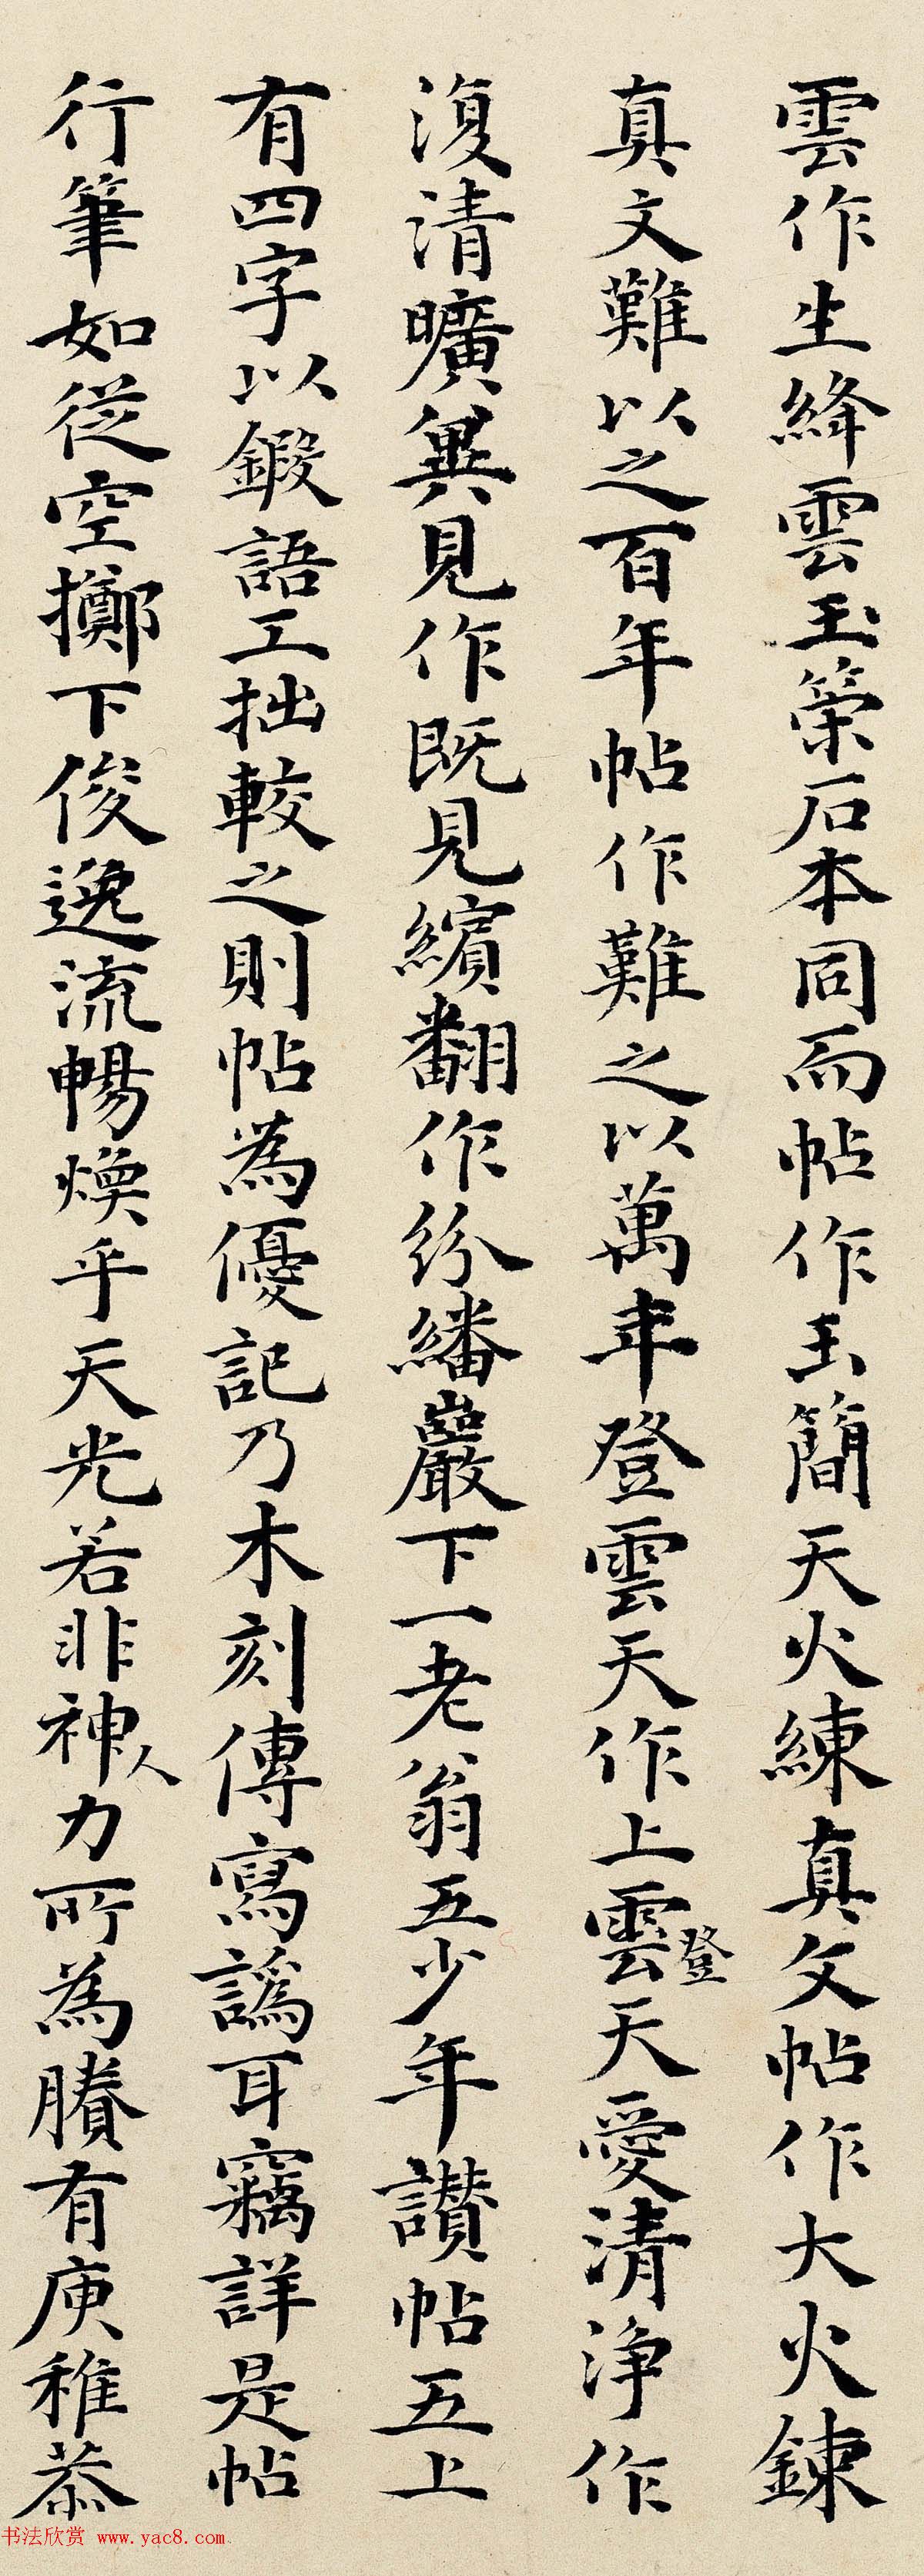 雲作生絳雲玉䇿石本同而帖作玉簡天火練真文帖作大火鍊
真文難以之百年帖作難之以萬年登雲天作上登雲天愛清淨作
復清曠異見作既見繽翻作紛繙巖下一老翁五少年讃帖五上
有四字以鍛語工拙較之則帖為優記乃木刻傳寫譌耳竊詳是帖
行筆如從空擲下俊逸流暢煥乎天光若非神人力所為賸有庚稚恭
书法欣赏 www.yac8.com